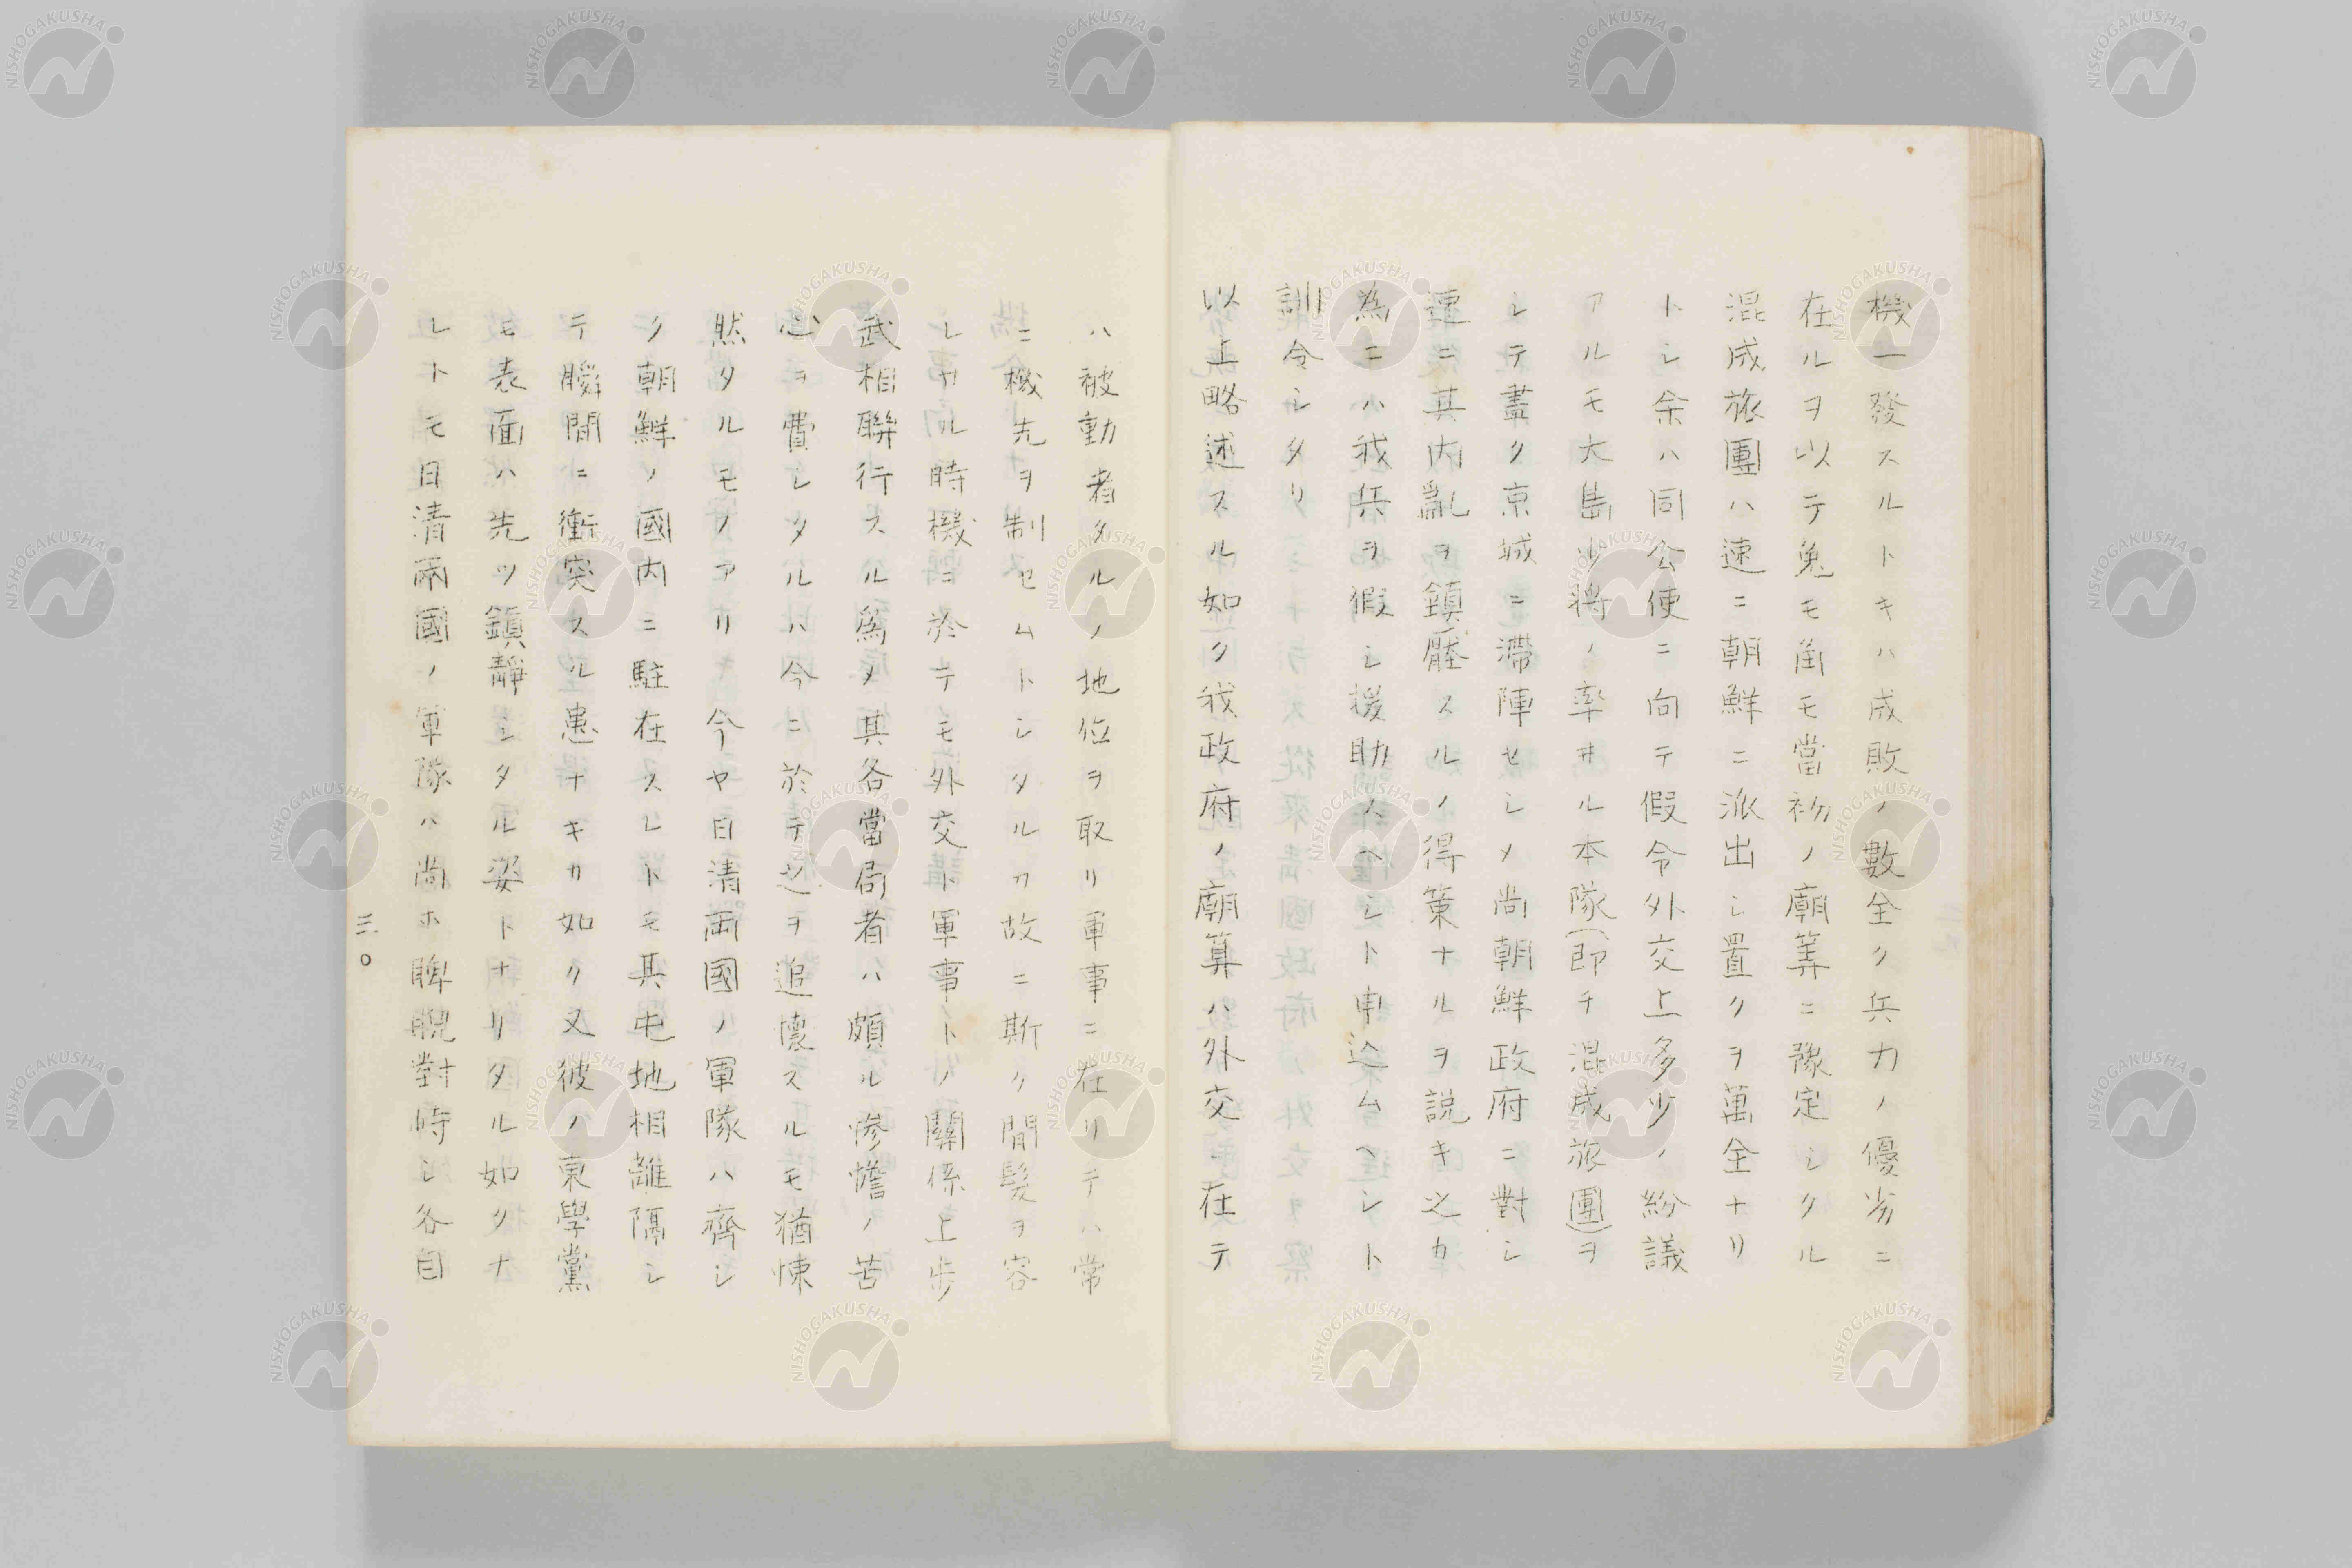 機一發スルトキハ成敗ノ數全ク兵力ノ優劣ニ
在ルヲ以テ兔モ角モ當初ノ廟筭ニ豫定シタル
混成旅團ハ速ニ朝鮮ニ派出シ置クヲ萬全ナリ
トシ余ハ同公使ニ向テ假令外交上多少ノ紛議
アルモ大島少將ノ率ヰル本隊(即チ混成旅團)ヲ
シテ盡ク京城ニ滯陣セシメ尚朝鮮政府ニ對シ
速ニ其内亂ヲ鎮壓スルノ得策ナルヲ説キ之カ
為ニハ我兵ヲ假シ援助スヘシト申込ムヘシト
訓令シタリ
以上略述スル如ク我政府ノ廟算ハ外交ニ在テ
ハ被動者タルノ地位ヲ取リ軍事ニ在リテハ常
ニ機先ヲ制セムトシタルカ故ニ斯ク間髮ヲ容
レサル時機ニ於テモ外交ト軍事トノ關係上步
武相聯行スル爲メ其各當局者ハ頗ル慘憺ノ苦
心ヲ費シタルハ今ニ於テ之ヲ追懷スルモ猶悚
然タルモノアリキ今ヤ日清兩國ノ軍隊ハ齊シ
ク朝鮮ノ國内ニ駐在スレトモ其屯地相離隔シ
テ瞬間ニ衝突スル患ナキカ如ク又彼ノ東學黨
モ表面ハ先ツ鎮靜シタル姿トナリタル如クナ
レトモ日清兩國ノ軍隊ハ尚ホ睥睨對峙シ各自
三〇
NISHOGAKUSHA